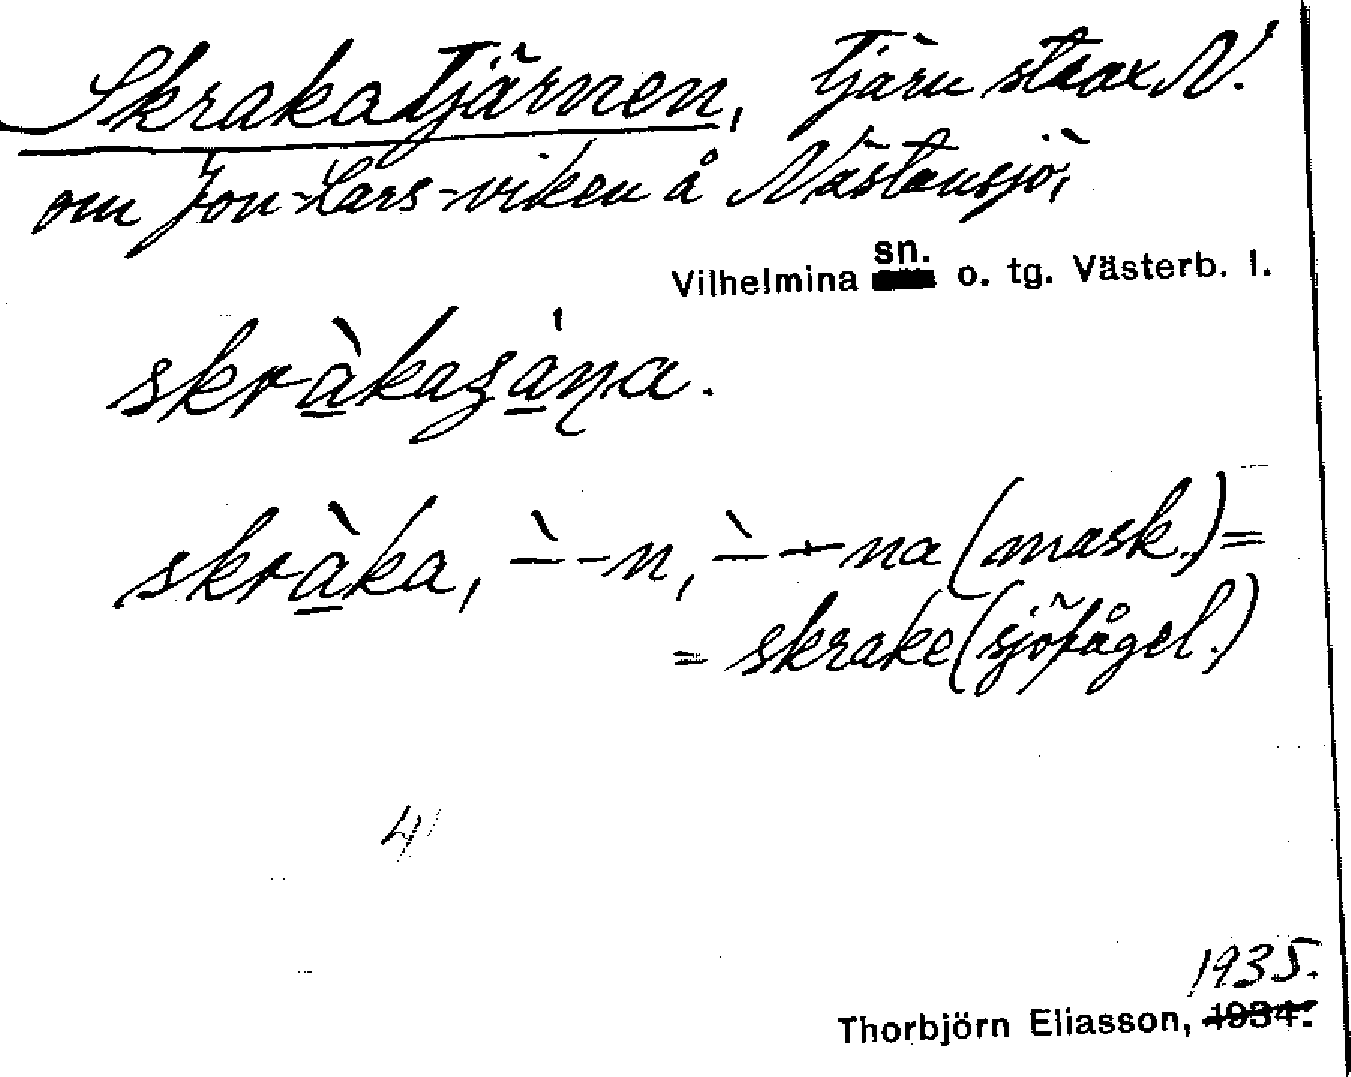 Skrakatjärnen, tjärn strax N.
om Jon-Lars-viken å Nästansjö,
sn.
Vilhelmina o. tg. Västerb. l.
skràkaʒáṇa.
skràka, `- -n, `- -na (mask.) =
= skrake (sjöfågel.)
4
1935.
Thorbjörn Eliasson, 1934.